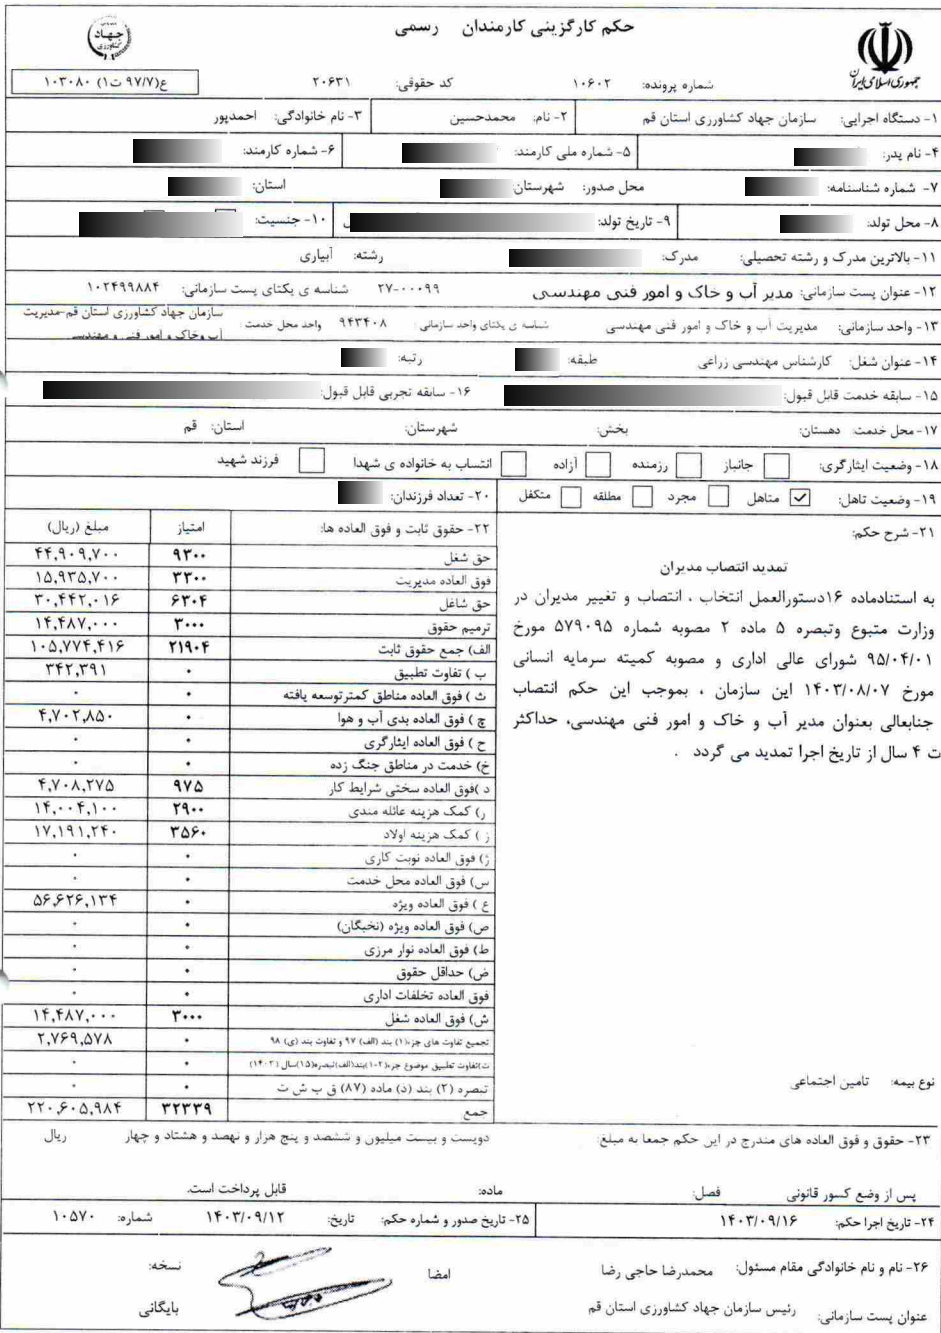 حکم کارگزینی کارمندان رسمی
جهاد کشاورزی
جمهوری اسلامی ایران
شماره پرونده: ۱۰۶۰۲ کد حقوقی: ۲۰۶۳۱ ع(۹۷/۷ ت۱) ۱۰۳۰۸۰
۱- دستگاه اجرایی: سازمان جهاد کشاورزی استان قم ۲- نام: محمدحسین ۳- نام خانوادگی: احمدپور
۴- نام پدر: ۵- شماره ملی کارمند: ۶- شماره کارمند:
۷- شماره شناسنامه: محل صدور: شهرستان: استان:
۸- محل تولد: ۹- تاریخ تولد: ۱۰- جنسیت:
۱۱- بالاترین مدرک و رشته تحصیلی: مدرک: رشته: آبیاری
۱۲- عنوان پست سازمانی: مدیر آب و خاک و امور فنی مهندسی ۲۷-۰۰۰۹۹ شناسه ی یکتای پست سازمانی: ۱۰۲۴۹۹۸۸۴
۱۳- واحد سازمانی: مدیریت آب و خاک و امور فنی مهندسی شناسه ی یکتای واحد سازمانی: ۹۴۳۴۰۸ واحد محل خدمت: سازمان جهاد کشاورزی استان قم-مدیریت
آب وخاک و امور فنی و مهندسی
۱۴- عنوان شغل: کارشناس مهندسی زراعی طبقه: رتبه:
۱۵- سابقه خدمت قابل قبول: ۱۶- سابقه تجربی قابل قبول:
۱۷- محل خدمت: دهستان: بخش: شهرستان: استان: قم
۱۸- وضعیت ایثارگری: جانباز رزمنده آزاده انتساب به خانواده ی شهدا فرزند شهید
۱۹- وضعیت تاهل: متاهل ✓ مجرد مطلقه متکفل ۲۰- تعداد فرزندان:
۲۱- شرح حکم:
تمدید انتصاب مدیران
به استنادماده ۱۶دستورالعمل انتخاب ، انتصاب و تغییر مدیران در
وزارت متبوع وتبصره ۵ ماده ۲ مصوبه شماره ۵۷۹۰۹۵ مورخ
۹۵/۰۴/۰۱ شورای عالی اداری و مصوبه کمیته سرمایه انسانی
مورخ ۱۴۰۳/۰۸/۰۷ این سازمان ، بموجب این حکم انتصاب
جنابعالی بعنوان مدیر آب و خاک و امور فنی مهندسی، حداکثر
ت ۴ سال از تاریخ اجرا تمدید می گردد .
نوع بیمه: تامین اجتماعی
۲۲- حقوق ثابت و فوق العاده ها: امتیاز مبلغ (ریال)
حق شغل ۹۳۰۰ ۴۴,۹۰۹,۷۰۰
فوق العاده مدیریت ۳۳۰۰ ۱۵,۹۳۵,۷۰۰
حق شاغل ۶۳۰۴ ۳۰,۴۴۲,۰۱۶
ترمیم حقوق ۳۰۰۰ ۱۴,۴۸۷,۰۰۰
الف) جمع حقوق ثابت ۲۱۹۰۴ ۱۰۵,۷۷۴,۴۱۶
ب ) تفاوت تطبیق ۰ ۳۴۲,۳۹۱
ث ) فوق العاده مناطق کمترتوسعه یافته ۰ ۰
چ ) فوق العاده بدی آب و هوا ۰ ۴,۷۰۲,۸۵۰
ح ) فوق العاده ایثارگری ۰ ۰
خ) خدمت در مناطق جنگ زده ۰ ۰
د )فوق العاده سختی شرایط کار ۹۷۵ ۴,۷۰۸,۲۷۵
ر) کمک هزینه عائله مندی ۲۹۰۰ ۱۴,۰۰۴,۱۰۰
ز ) کمک هزینه اولاد ۳۵۶۰ ۱۷,۱۹۱,۲۴۰
ژ) فوق العاده نوبت کاری ۰ ۰
س) فوق العاده محل خدمت ۰ ۰
ع ) فوق العاده ویژه ۰ ۵۶,۶۲۶,۱۳۴
ص) فوق العاده ویژه (نخبگان) ۰ ۰
ط) فوق العاده نوار مرزی ۰ ۰
ض) حداقل حقوق ۰ ۰
فوق العاده تخلفات اداری ۰ ۰
ش) فوق العاده شغل ۳۰۰۰ ۱۴,۴۸۷,۰۰۰
تجمیع تفاوت های جزء(۱) بند (الف) ۹۷ و تفاوت بند (ی) ۹۸ ۰ ۲,۷۶۹,۵۷۸
ت)تفاوت تطبیق موضوع جزء(۲-۱)بند(الف)تبصره(۱۵)سال (۱۴۰۳) ۰ ۰
تبصره (۲) بند (د) ماده (۸۷) ق ب ش ت ۰ ۰
جمع ۳۲۳۳۹ ۲۲۰,۶۰۵,۹۸۴
۲۳- حقوق و فوق العاده های مندرج در این حکم جمعا به مبلغ: دویست و بیست میلیون و ششصد و پنج هزار و نهصد و هشتاد و چهار ریال
پس از وضع کسور قانونی فصل: ماده: قابل پرداخت است.
۲۴- تاریخ اجرا حکم: ۱۴۰۳/۰۹/۱۶ ۲۵- تاریخ صدور و شماره حکم: تاریخ: ۱۴۰۳/۰۹/۱۲ شماره: ۱۰۵۷۰
۲۶- نام و نام خانوادگی مقام مسئول: محمدرضا حاجی رضا امضا نسخه:
عنوان پست سازمانی: رئیس سازمان جهاد کشاورزی استان قم بایگانی